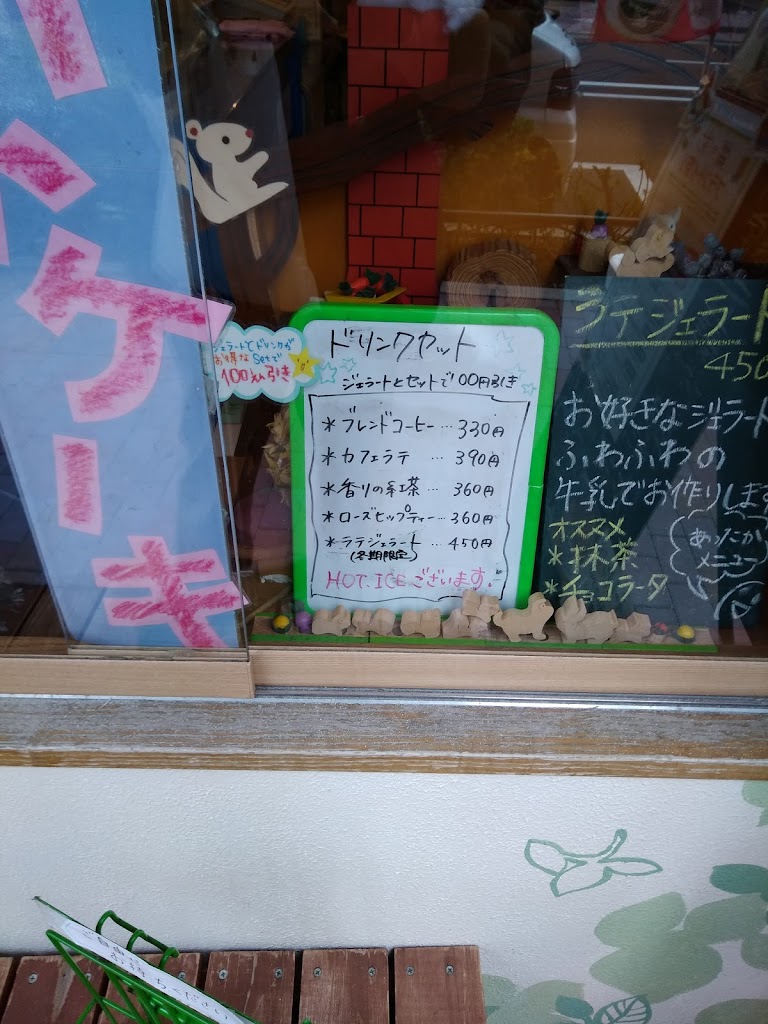 ンケーキ
ジェラートとドリンクが
お得なSetで
100円引き
ドリンクセット
ジェラートとセットで100円引き
*ブレンドコーヒー…330円
*カフェラテ…390円
*香りの紅茶…360円
*ローズヒップティー…360円
*ラテジェラート…450円
(冬期限定)
HOT.ICEございます。
ラテジェラート
450
お好きなジェラート
ふわふわの
牛乳でお作りします
オススメ
*抹茶
*チョコラータ
あったか
メニュー
ご自由に
お持ちください